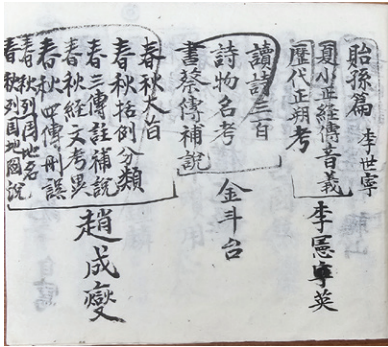 貽孫篇 李世寧
夏小正経傳音義
歷代正朔考
李憲寧英
讀詩三百
詩物名考
書蔡傳補說
金斗台
春秋大旨
春秋括例分類
春三傳註補說
春秋経文考異
春秋四傳刊誤
春秋列国地名
春秋列国地圖說
趙成燮